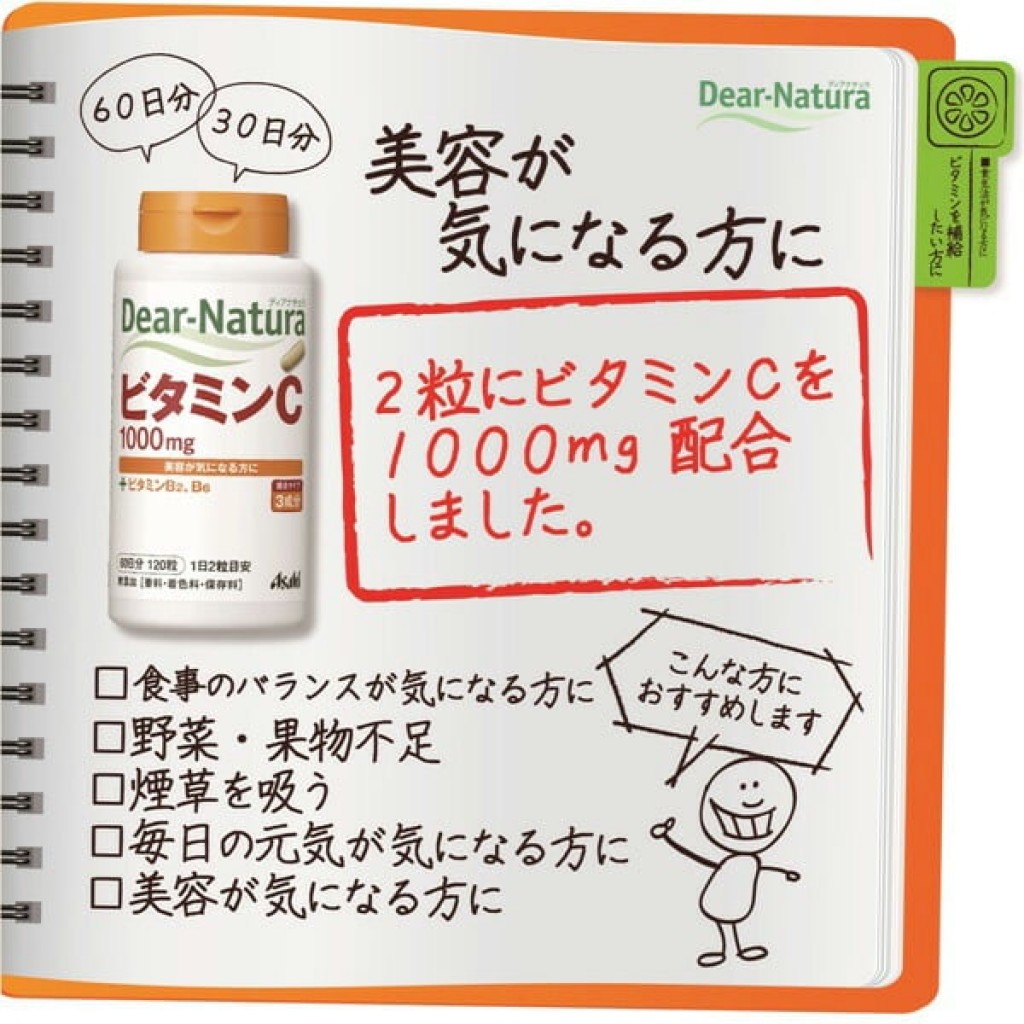 60日分
30日分
ディアナチュラ
Dear-Natura
美容が
気になる方に
ビタミンを補給
したい方に
ディアナチュラ
Dear-Natura
ビタミンC
1000mg
美容が気になる方に
+ビタミンB2、B6
3成分
60日分 120粒 1日2粒目安
無添加 [香料・着色料・保存料]
Asahi
2粒にビタミンCを
1000mg 配合
しました。
こんな方に
おすすめします
□食事のバランスが気になる方に
□野菜・果物不足
□煙草を吸う
□毎日の元気が気になる方に
□美容が気になる方に